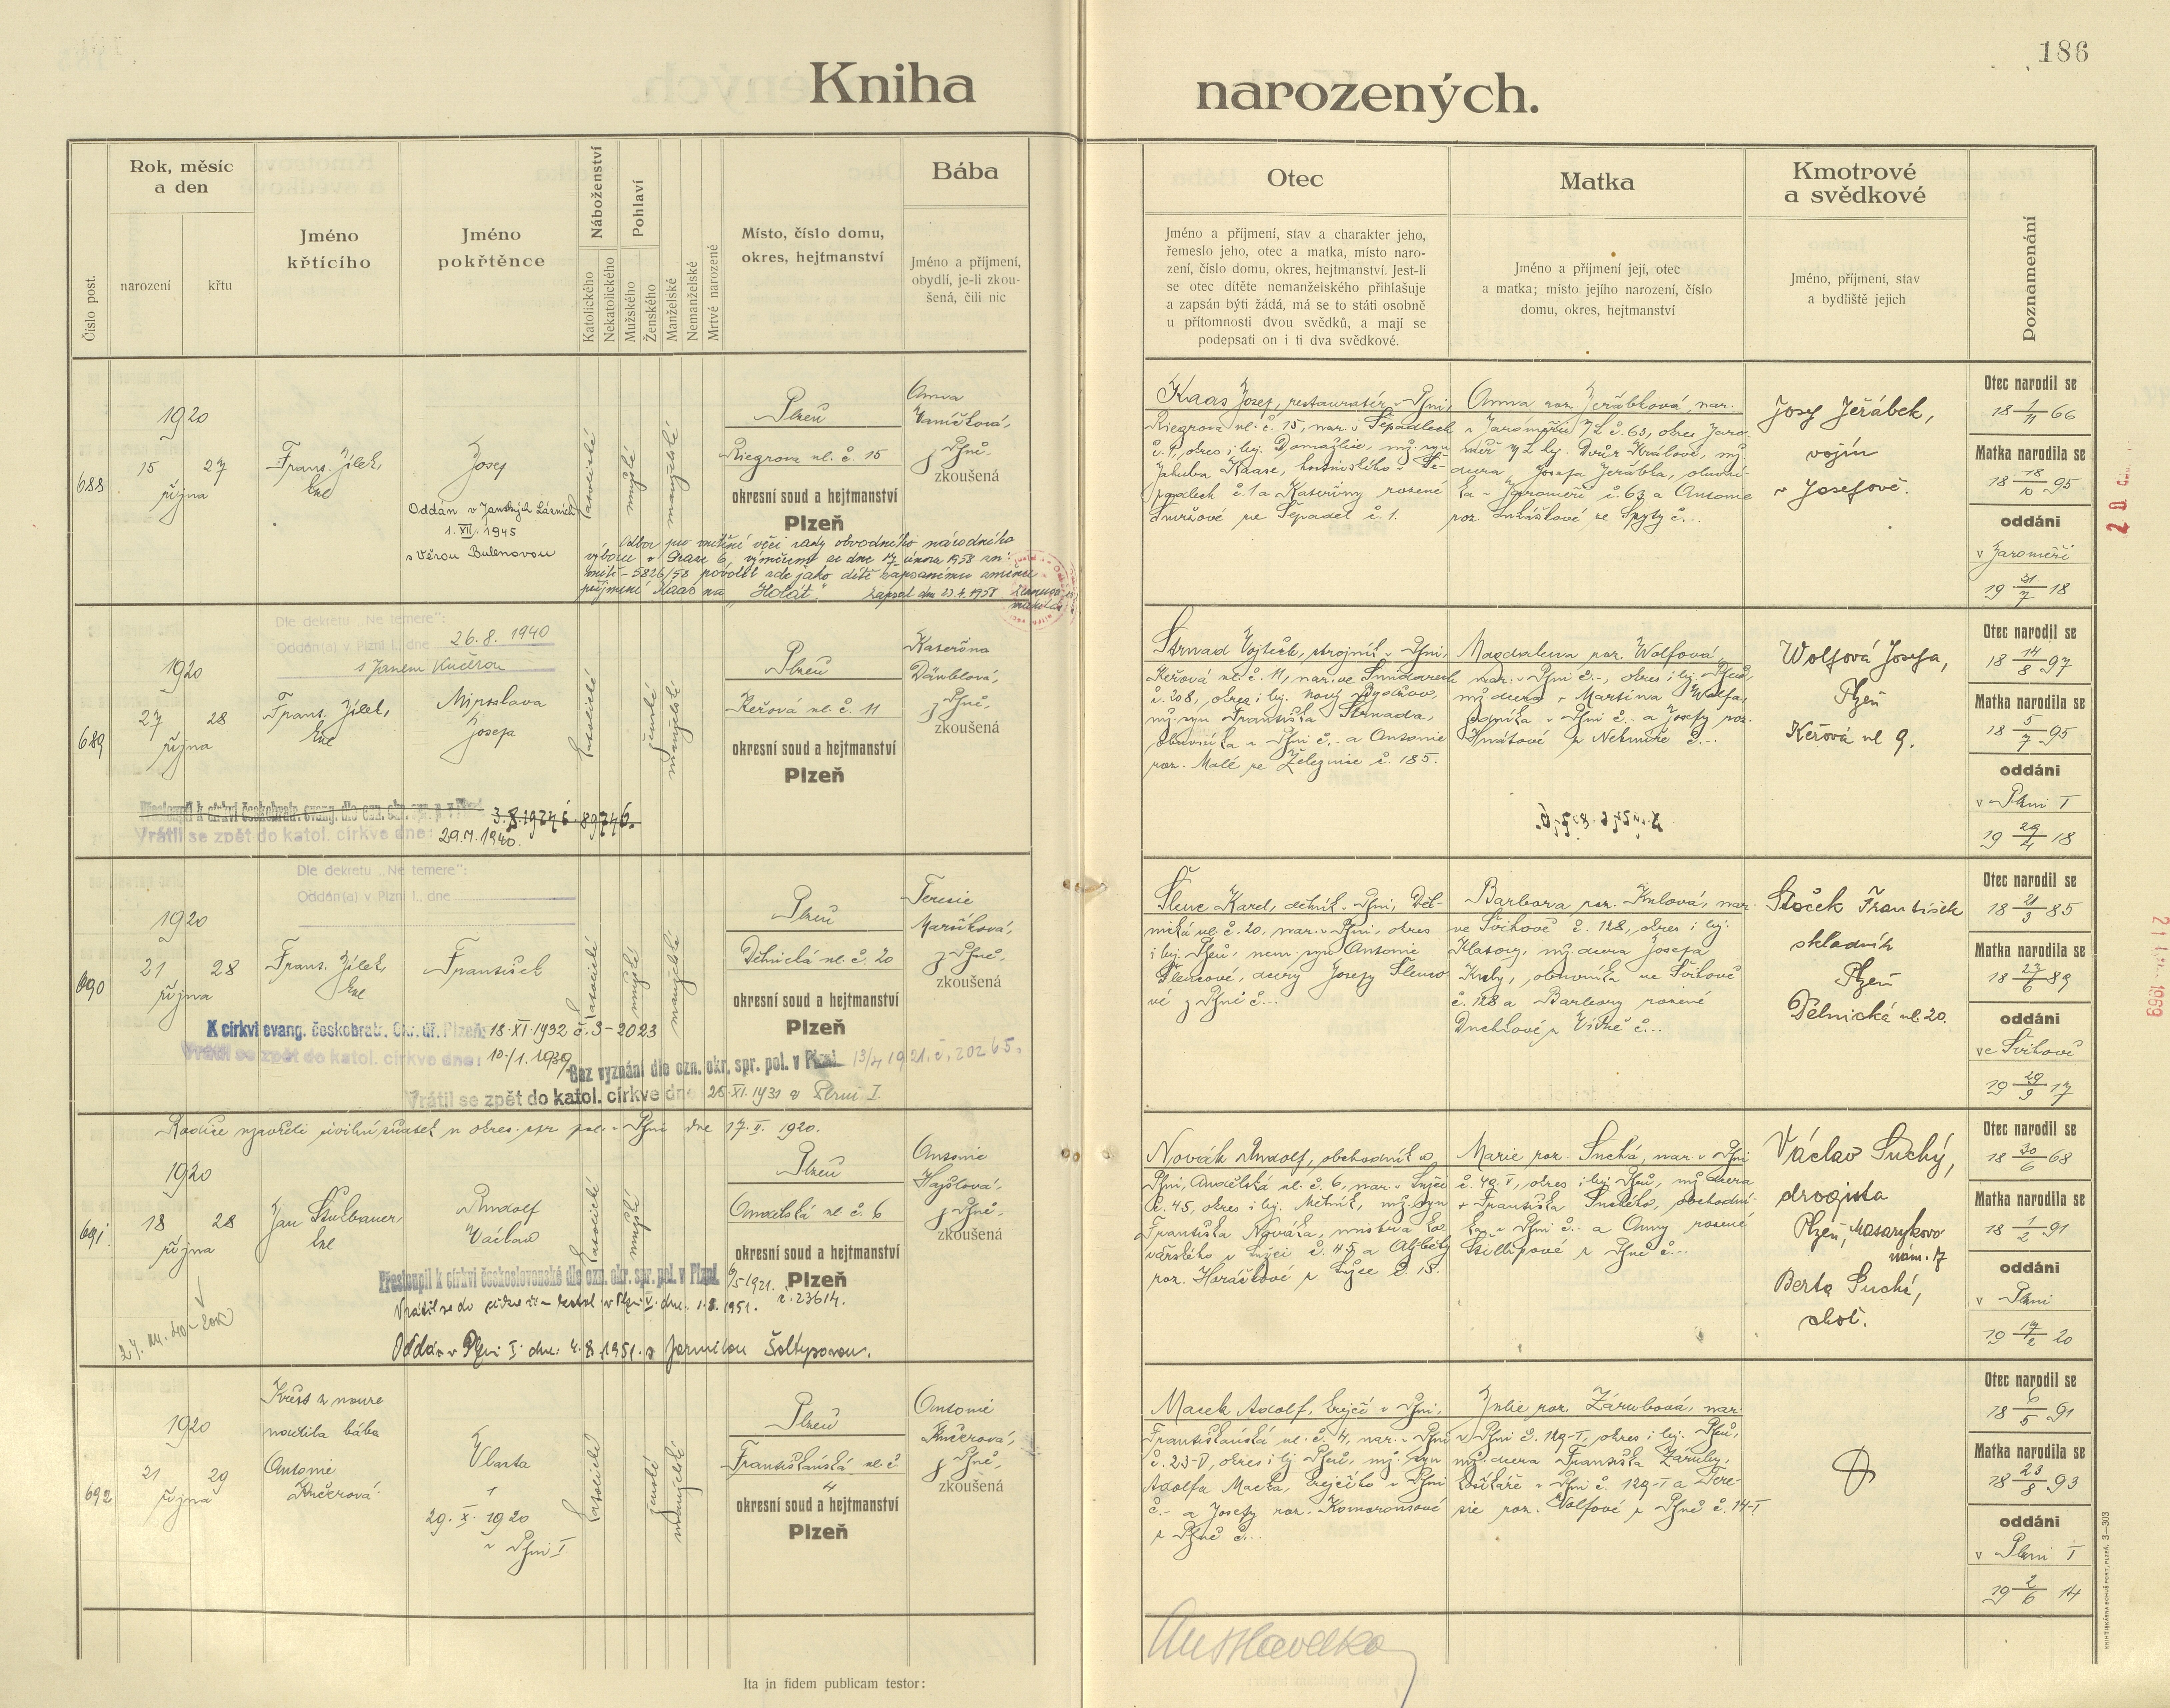 186
Kniha narozených.
Číslo post.
Rok, měsíc
a den
narození
křtu
Jméno
křtícího
Jméno
pokřtěnce
Náboženství
Katolického
Nekatolického
Pohlaví
Mužského
Ženského
Manželské
Nemanželské
Mrtvě narozené
Místo, číslo domu,
okres, hejtmanství
Bába
Jméno a příjmení,
obydlí, je-li zkou-
šená, čili nic
Otec
Jméno a příjmení, stav a charakter jeho,
řemeslo jeho, otec a matka, místo naro-
zení, číslo domu, okres, hejtmanství. Jest-li
se otec dítěte nemanželského přihlašuje
a zapsán býti žádá, má se to státi osobně
u přítomnosti dvou svědků, a mají se
podepsati on i ti dva svědkové.
Matka
Jméno a příjmení její, otec
a matka; místo jejího narození, číslo
domu, okres, hejtmanství
Kmotrové
a svědkové
Jméno, příjmení, stav
a bydliště jejich
Poznamenání
688
1920
15 27
října
Frant. Jílek,
Josef
Oddán v Janských Lázních
1. VII. 1945
s Věrou Bulenovou
katolické
mužské
manželské
Plzeň
Riegrova ul. č. 15
okresní soud a hejtmanství
Plzeň
Anna
Vaníčková,
z Plzně,
zkoušená
Odbor pro vnitřní věci rady obvodního národního
výboru v Praze 6, výměrem ze dne 17. února 1958 zn:
vnitř-5826/58 povolil zde jako dítě zapsanému změnu
příjmení Kaas na "Holát". Zapsal dne 23.4.1958
Kaas Josef, restauratér v Plzni,
Riegrova ul. č. 15, nar. v Tepadlech
č. 1, okres i hej. Domažlice, mž. syn
Jakuba Kaase, hostinského v Te-
padlech č. 1 a Kateřiny rozené
Smržové ze Tepadel č. 1.
Anna roz. Jeřábková, nar.
v Jaroměři č. 63, okres Jaro-
měř hej. Dvůr Králové, mž.
dcera Josefa Jeřábka,
v Jaroměři č. 63 a Antonie
Josef Jeřábek,
vojín
v Josefově.
Otec narodil se
18 1/11 66
Matka narodila se
18 18/10 95
oddáni
v Jaroměři
19 31/7 18
689
Dle dekretu „Ne temere":
Oddán(a) v Plzni I., dne 26.8.1940
s Janem Kučerou
1920
27 28
října
Frant. Jílek,
Miroslava
Josefa
katolické
ženské
manželské
Plzeň
Keřová ul. č. 11
okresní soud a hejtmanství
Plzeň
Kateřina
Dänblová,
z Plzně,
zkoušená
Přestoupil k církvi českobratr. evang. dle ozn. okr. spr. p. v Plzni 3.8.1927 č. 89746.
Vrátil se zpět do katol. církve dne: 29.7.1940.
Strnad Vojtěch, strojník v Plzni,
Keřová ul. č. 11, nar. ve Smidarech
č. 208, okres i hej. Nový Bydžov,
mž. syn Františka Strnada,
obuvníka v Plzni č.- a Antonie
roz. Malé ze Železnice č. 185.
Magdalena roz. Wolfová,
nar. v Plzni č.-, okres i hej. Plzeň,
mž. dcera + Martina Wolfa,
v Plzni č.- a Josefy roz.
Hnátové z Nekmíře č...
Wolfová Josefa,
Plzeň
Keřová ul 9.
Otec narodil se
18 14/8 97
Matka narodila se
18 5/7 95
oddáni
v Plzni I
19 29/4 18
690
Dle dekretu „Ne temere":
Oddán(a) v Plzni I., dne
1920
21 28
října
Frant. Jílek,
František
katolické
mužské
manželské
Plzeň
Dělnická ul. č. 20
okresní soud a hejtmanství
Plzeň
Terezie
Maříková,
z Plzně,
zkoušená
K církvi evang. českobratr. Okr. úř. Plzeň: 18.XI.1932 č. 3-2023
Vrátil se zpět do katol. církve dne: 10./1.1939
Bez vyznání dle ozn. okr. spr. pol. v Plzni 13/4 1921. č. 20265.
Vrátil se zpět do katol. církve dne 25.XI.1931 v Plzni I.
Šlenc Karel, dělník v Plzni, Děl-
nická ul. č. 20, nar. v Plzni, okres
i hej. Plzeň, nem. syn Antonie
Šlencové, dcery Josefy Šlenco-
vé z Plzně č...
Barbora roz. Krbová, nar.
ve Švihově č. 128, okres i hej.
Klatovy, mž. dcera Josefa
Krby, obuvníka ve Švihově
č. 128 a Barbory rozené
Duchkové z Vícné č...
Stoček František
skladník
Plzeň
Dělnická ul. 20.
Otec narodil se
18 21/3 85
Matka narodila se
18 27/7 89
oddáni
ve Švihově
19 29/9 17
691
Rodiče uzavřeli civilní sňatek u okres. spr. pol. v Plzni dne 17. II. 1920.
1920
18 28
října
Jan Stulbauer,
Rudolf
Václav
katolické
mužské
manželské
Plzeň
Andělská ul. č. 6
okresní soud a hejtmanství
Plzeň
Antonie
Hajšlová,
z Plzně,
zkoušená
Přestoupil k církvi československé dle ozn. okr. spr. pol. v Plzni 6/5 1921. č. 23614.
Vrátil se do církve řím. katol. v Plzni V. dne 1.8.1951.
Oddán v Plzni I. dne: 4.8.1951. s Jarmilou Šoltysovou.
Novák Rudolf, obchodník v
Plzni, Andělská ul. č. 6, nar. v Lužci
č. 45, okres i hej. Mělník, mž. syn
Františka Nováka, mistra ko-
vářského v Lužci č. 45 a Alžběty
roz. Horáčkové z Lužce č. 15.
Marie roz. Suchá, nar. v Plzni
č. 49-I, okres i hej. Plzeň, mž. dcera
+ Františka Suchého, obchodní-
ka v Plzni č.- a Anny rozené
z Plzně č...
Václav Suchý,
drogista
Plzeň, Masarykovo
nám. 17
Berta Suchá,
choť.
Otec narodil se
18 30/6 68
Matka narodila se
18 1/2 91
oddáni
v Plzni
19 17/2 20
692
1920
21 29
října
Křest z nouze
udělila bába
Antonie
Kučerová
Vlasta
29. X. 1920
v Plzni I.
katolické
ženské
manželské
Plzeň
Františkánská ul. č.
4
okresní soud a hejtmanství
Plzeň
Antonie
Kučerová,
z Plzně,
zkoušená
Macek Adolf, krejčí v Plzni,
Františkánská ul. č. 4, nar. v Plzni
č. 23-V, okres i hej. Plzeň, mž. syn
Adolfa Macka, krejčího v Plzni
č.- a Josefy roz. Komorousové
z Plzně č...
Julie roz. Zárubová, nar.
v Plzni č. 129-I, okres i hej. Plzeň,
mž. dcera Františka Záruby,
v Plzni č. 129-I a Tere-
zie roz. Wolfové z Plzně č. 14-I.
Otec narodil se
18 6/5 91
Matka narodila se
18 23/8 93
oddáni
v Plzni I
19 2/6 14
Ita in fidem publicam testor:
KNIHTISKÁRNA BOHUŠ PORT, PLZEŇ. 3—303